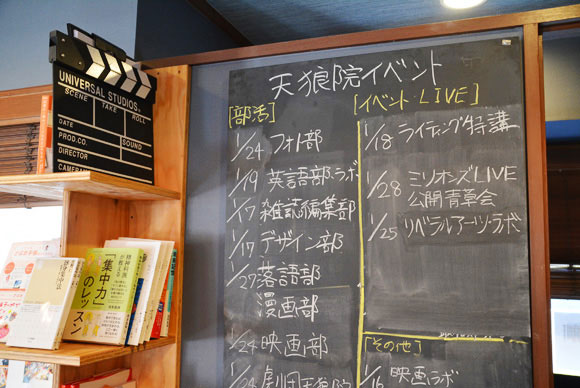 UNIVERSAL STUDIOS
SCENE TAKE ROLL
DATE SOUND
PROD.CO.
DIRECTOR
CAMERA
「集中力」のレッスン
天狼院イベント
[部活]
1/24 フォト部
1/19 英語部・ラボ
1/17 雑誌編集部
1/17 デザイン部
1/27 落語部
漫画部
1/24 映画部
1/24 劇団天狼院
[イベント・LIVE]
1/18 ライティング特講
1/28 ミリオンズLIVE
公開青革会
1/25 リベラルアーツ・ラボ
[その他]
1/16 映画ラボ